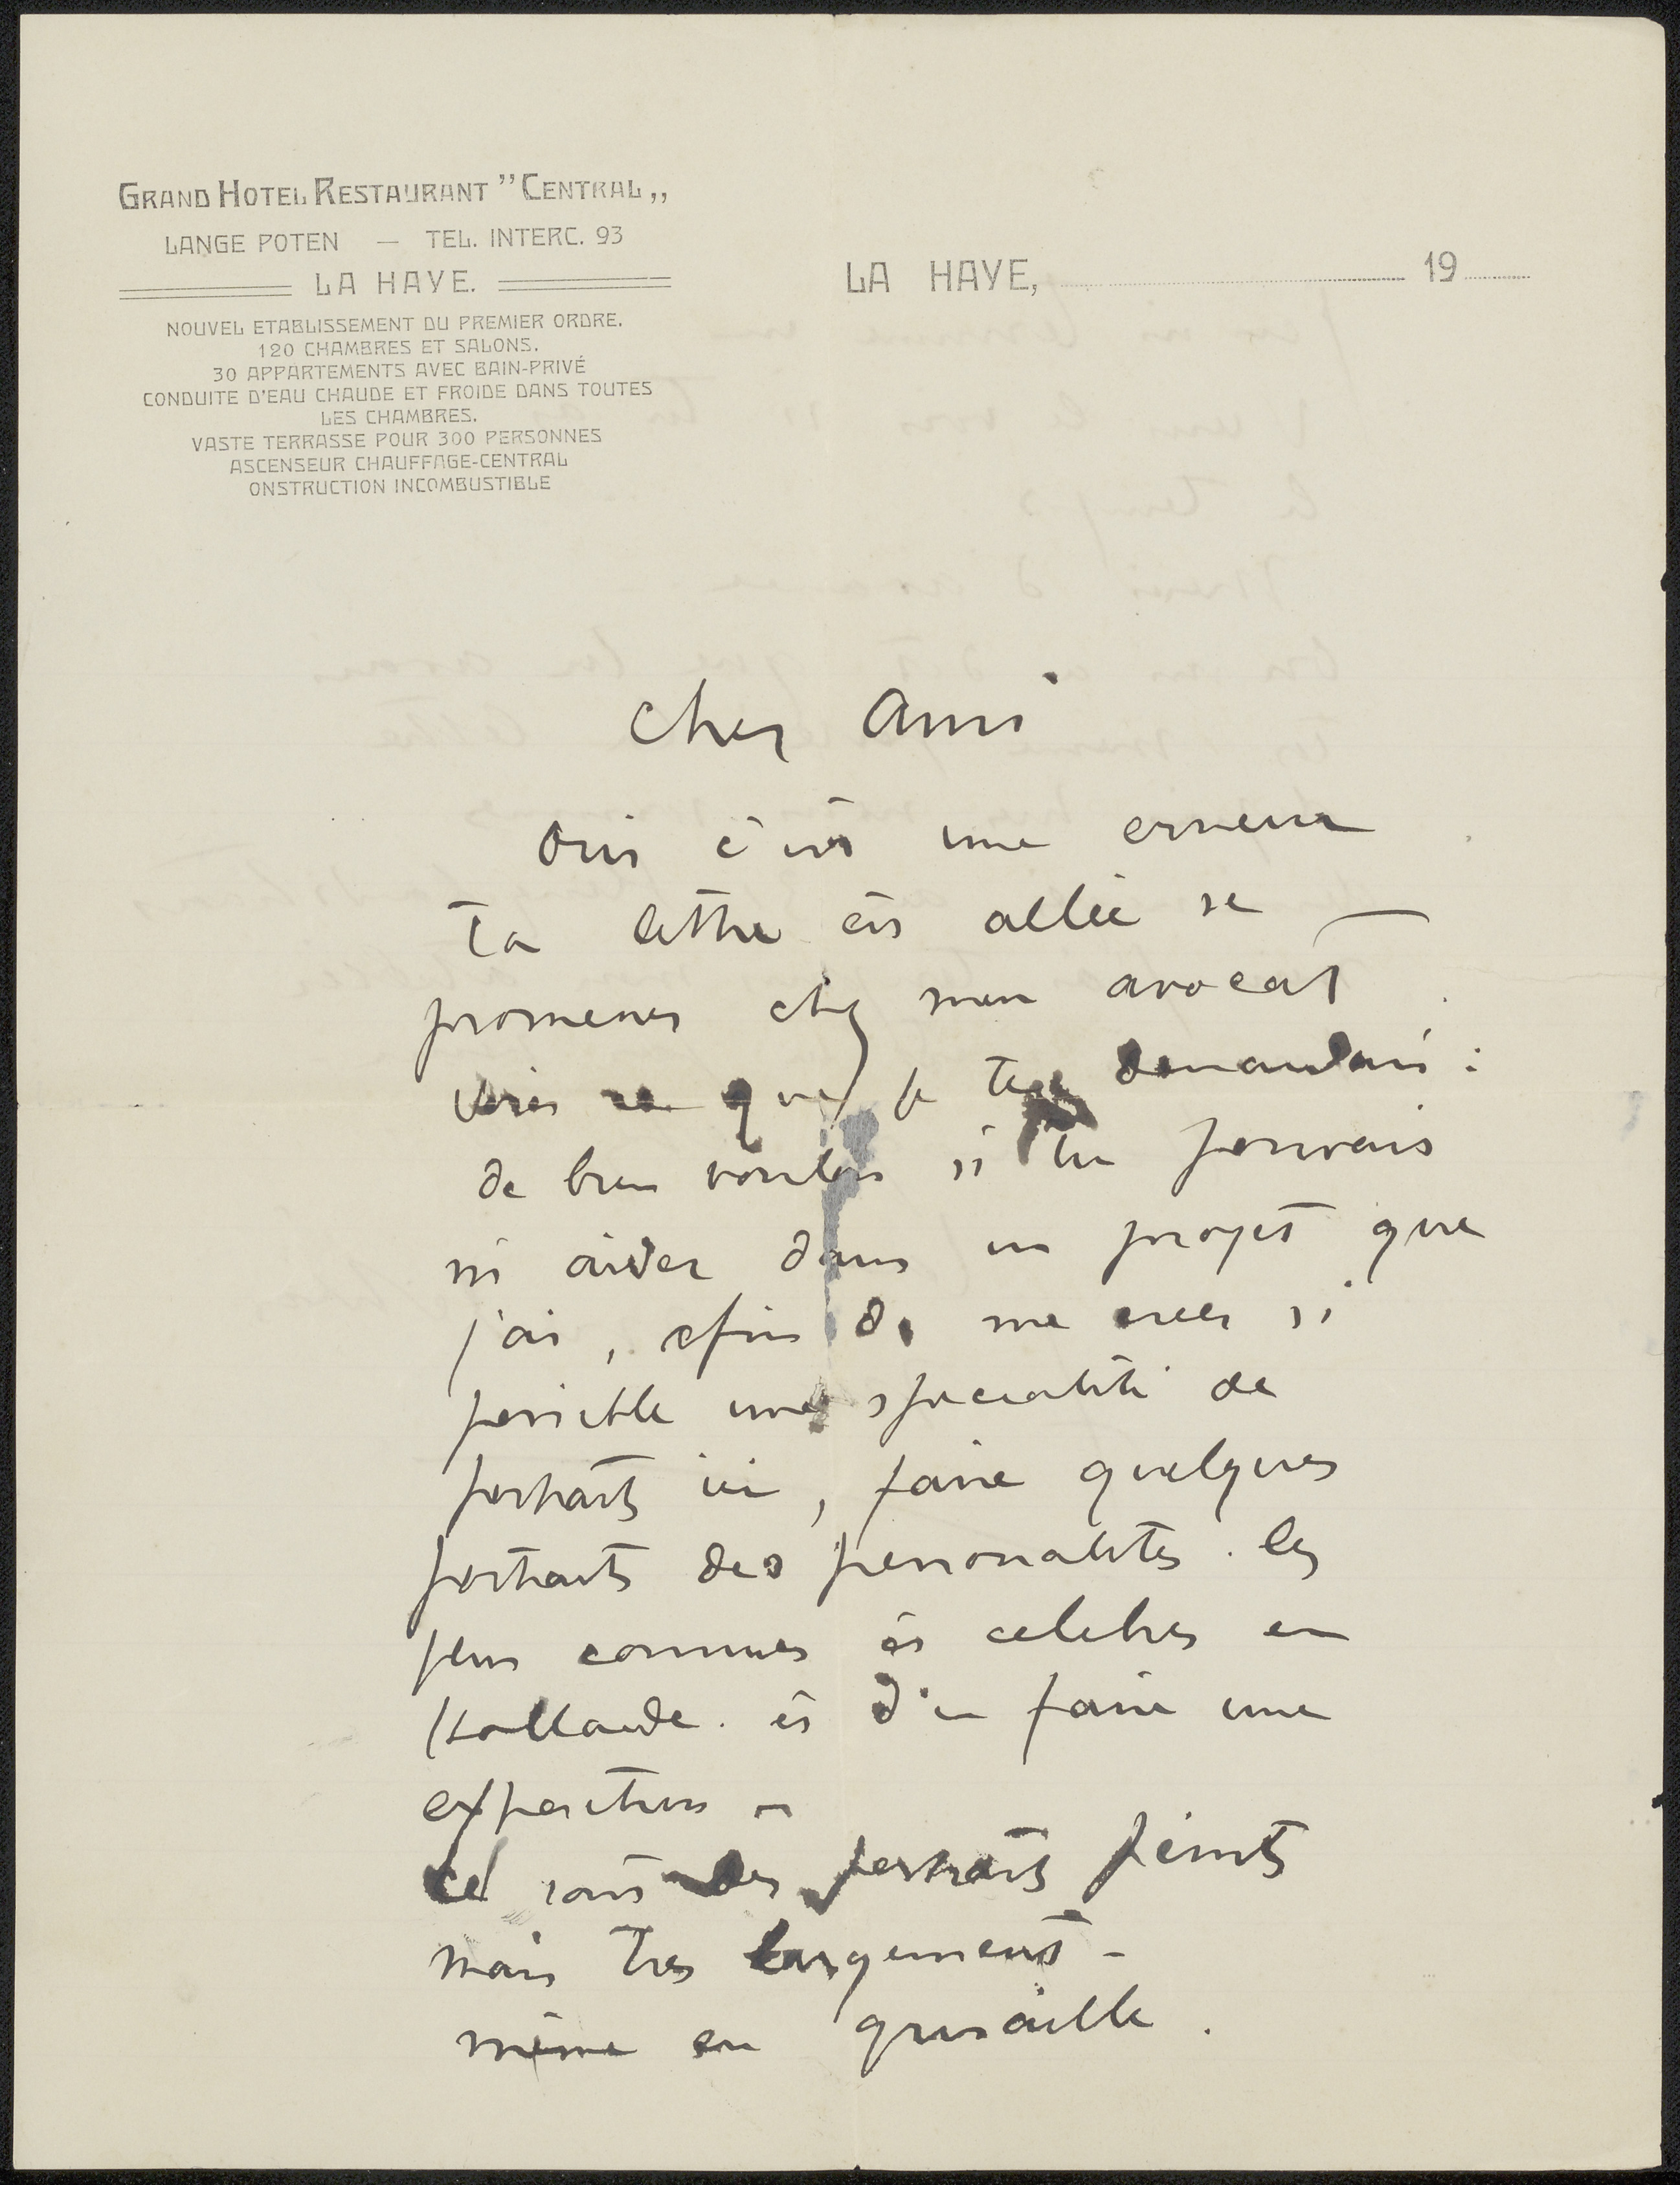 GRAND HOTEL RESTAURANT "CENTRAL„
LANGE POTEN — TEL. INTERC. 93
LA HAYE.
NOUVEL ETABLISSEMENT DU PREMIER ORDRE.
120 CHAMBRES ET SALONS.
30 APPARTEMENTS AVEC BAIN-PRIVÉ
CONDUITE D'EAU CHAUDE ET FROIDE DANS TOUTES
LES CHAMBRES.
VASTE TERRASSE POUR 300 PERSONNES
ASCENSEUR CHAUFFAGE-CENTRAL
ONSTRUCTION INCOMBUSTIBLE
LA HAYE, 19
Cher Ami
Oui c'est une erreur
Ta lettre est allée se
promener chez mon avocat
Voici ce que je te demandais :
de bien vouloir si tu pouvais
m'aider dans un projet que
j'ai, afin de me creer si
possible une specialité de
portraits ici, faire quelques
portraits des personalités . les
plus connues et celebres en
Hollande . et d'en faire une
exposition –
Ce sont des portraits peints
mais tres largement –
même en grisaille .